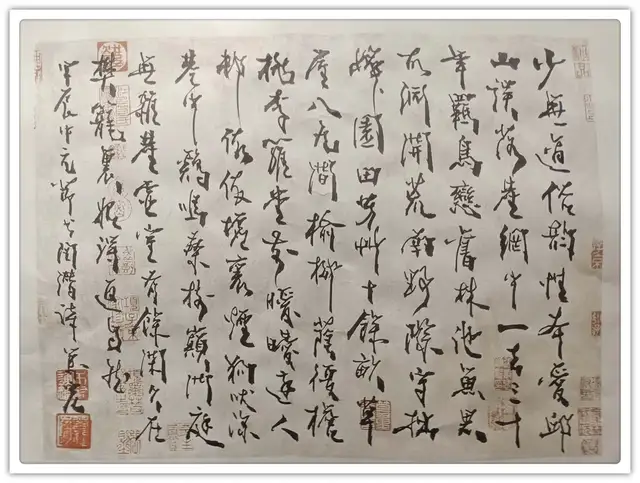 少無道俗韻性本愛邱
山誤落塵網中一去三十
年羈鳥戀舊林池魚思
故淵開荒南野際守拙
歸園田芳艸十餘畝草
屋八九間榆柳蔭後檐
桃李羅堂前曖曖遠人
村依依墟裏煙狗吠深
巷中鷄鳴桑樹巔戶庭
無雜塵虛室有餘閑久在
樊籠裏復得返自然
甲辰中元節書陶潛詩